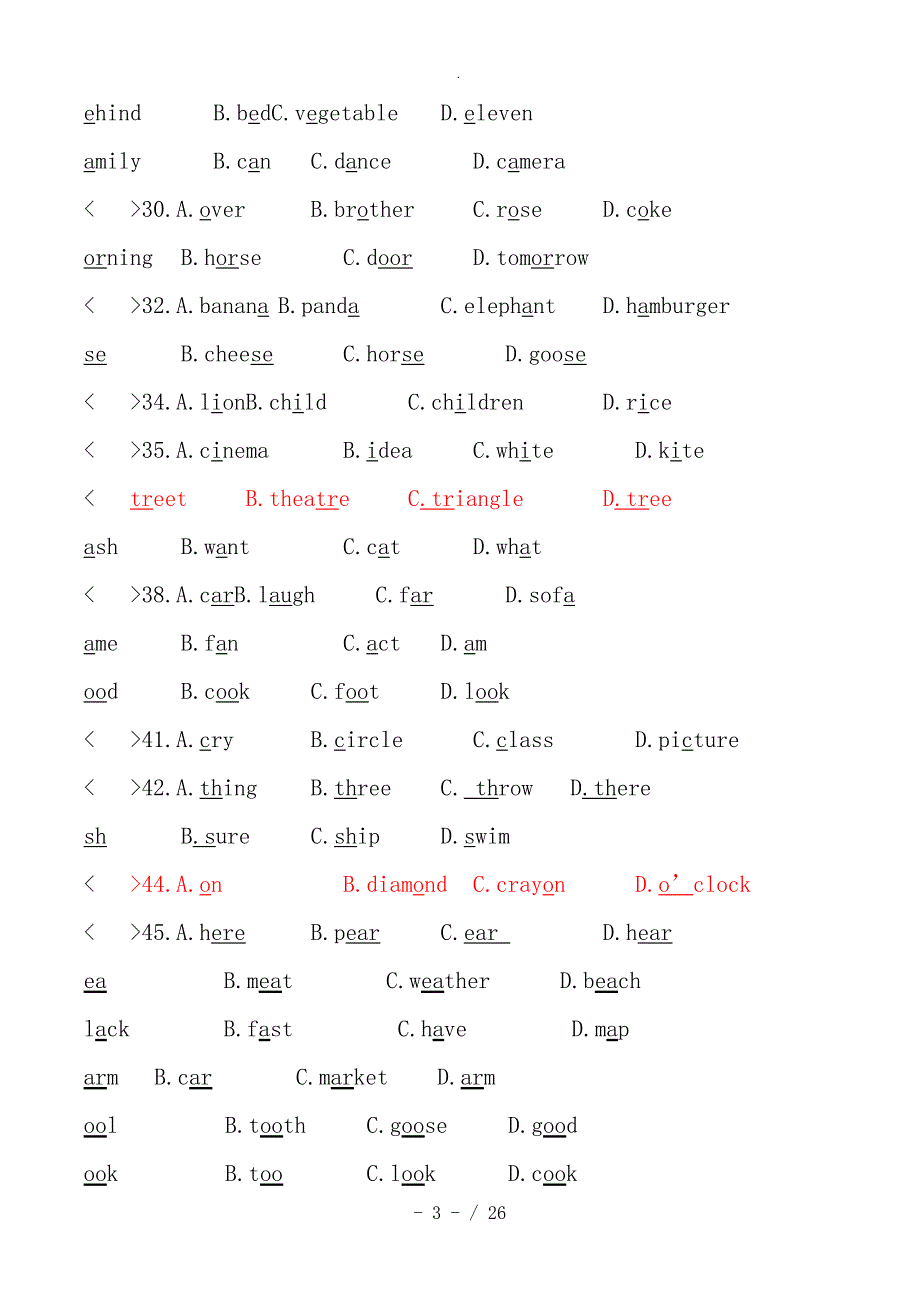 .
ehind B.bedC.vegetable D.eleven
amily B.can C.dance D.camera
< >30.A.over B.brother C.rose D.coke
orning B.horse C.door D.tomorrow
< >32.A.banana B.panda C.elephant D.hamburger
se B.cheese C.horse D.goose
< >34.A.lionB.child C.children D.rice
< >35.A.cinema B.idea C.white D.kite
< treet B.theatre C.triangle D.tree
ash B.want C.cat D.what
< >38.A.carB.laugh C.far D.sofa
ame B.fan C.act D.am
ood B.cook C.foot D.look
< >41.A.cry B.circle C.class D.picture
< >42.A.thing B.three C. throw D.there
sh B.sure C.ship D.swim
< >44.A.on B.diamond C.crayon D.o’ clock
< >45.A.here B.pear C.ear D.hear
ea B.meat C.weather D.beach
lack B.fast C.have D.map
arm B.car C.market D.arm
ool B.tooth C.goose D.good
ook B.too C.look D.cook
- 3 - / 26